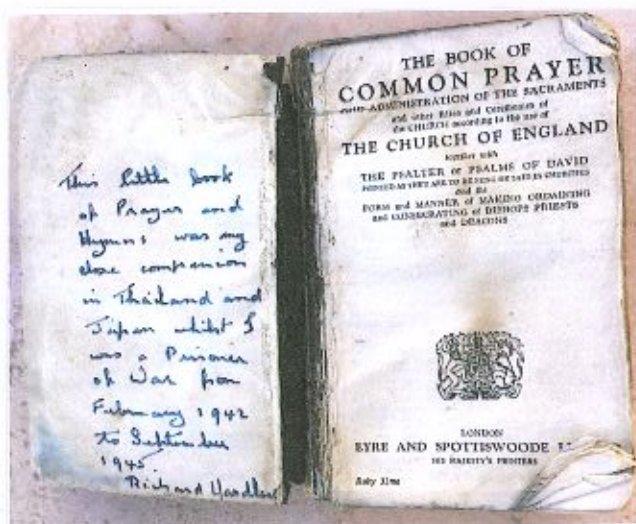 This little book
of Prayer and
Hymns was my
close companion
in Thailand and
Japan whilst I
was a Prisoner
of War from
February 1942
to September
1945.
Richard
THE BOOK OF
COMMON PRAYER
ADMINISTRATION OF THE SACRAMENTS
and other Rites and Ceremonies of
the CHURCH according to the use of
THE CHURCH OF ENGLAND
together with
THE PSALTER or PSALMS OF DAVID
POINTED AS THEY ARE TO BE SUNG OR SAID IN CHURCHES
and the
FORM and MANNER of MAKING ORDAINING
and CONSECRATING of BISHOPS PRIESTS
and DEACONS
LONDON
EYRE AND SPOTTISWOODE
HIS MAJESTY'S PRINTERS
Ruby 32mo